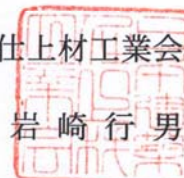 仕上材工業会
岩崎行男